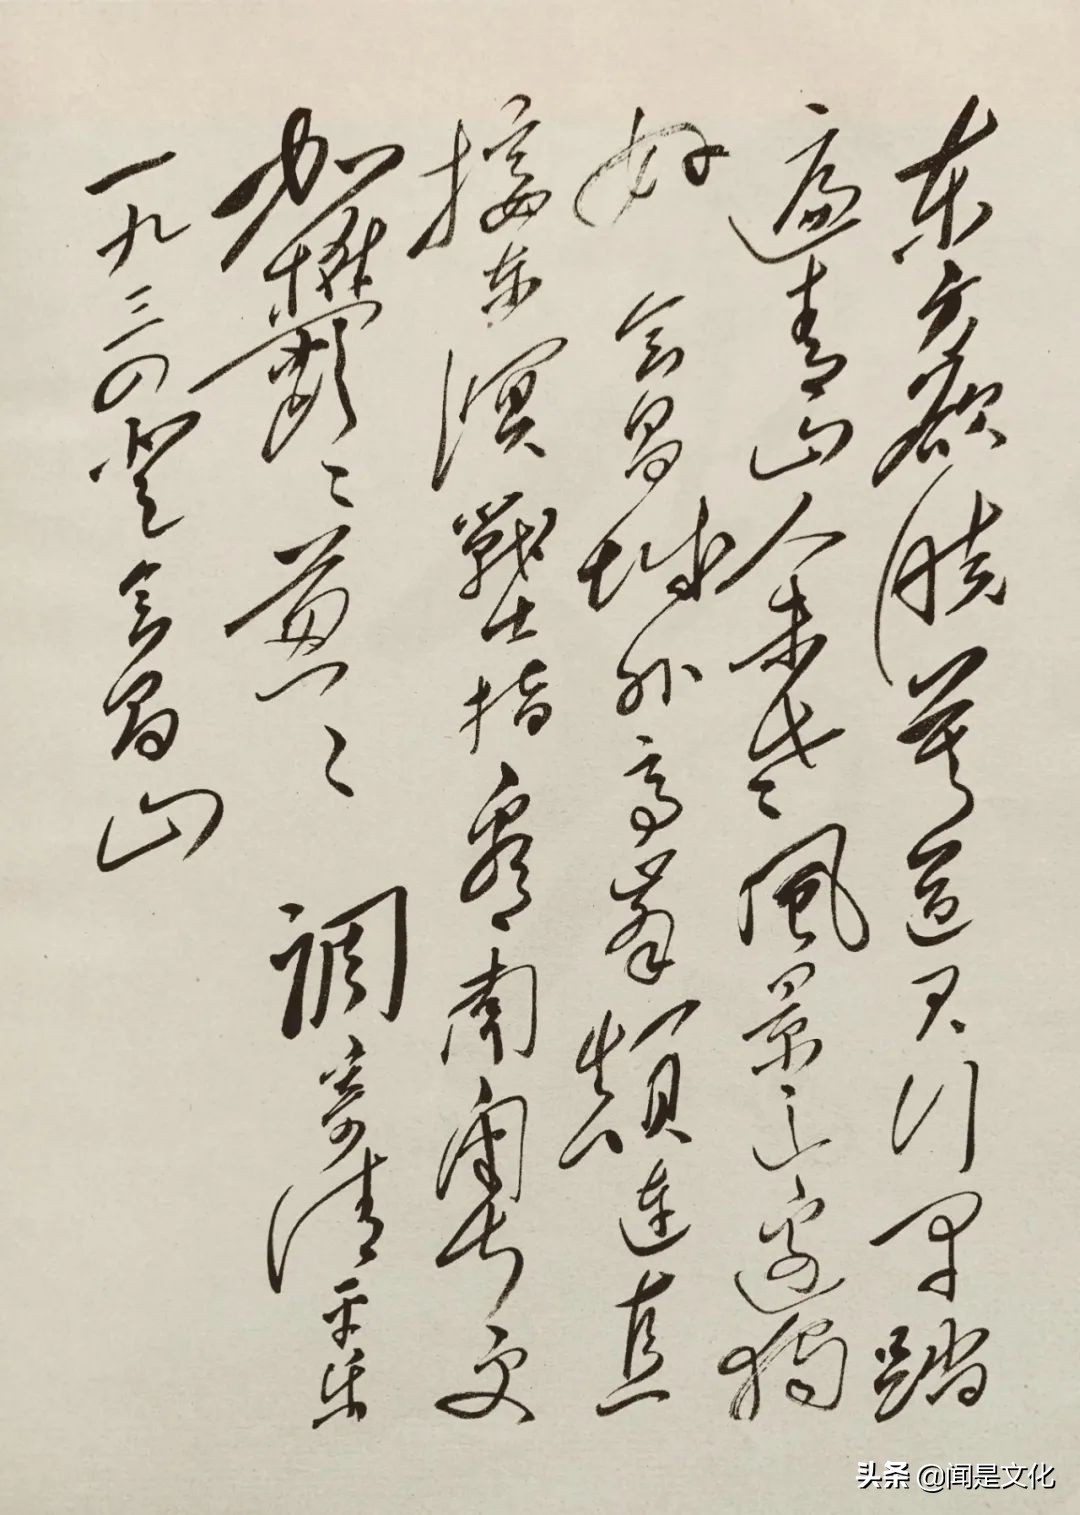 东方欲晓莫道君行早踏
遍青山人未老風景这邊獨
好 会昌城外高峯顛连直
接东溟戰士指看南粤更
加鬱〻葱〻 調寄清平乐
一九三四登会昌山
头条 @闻是文化